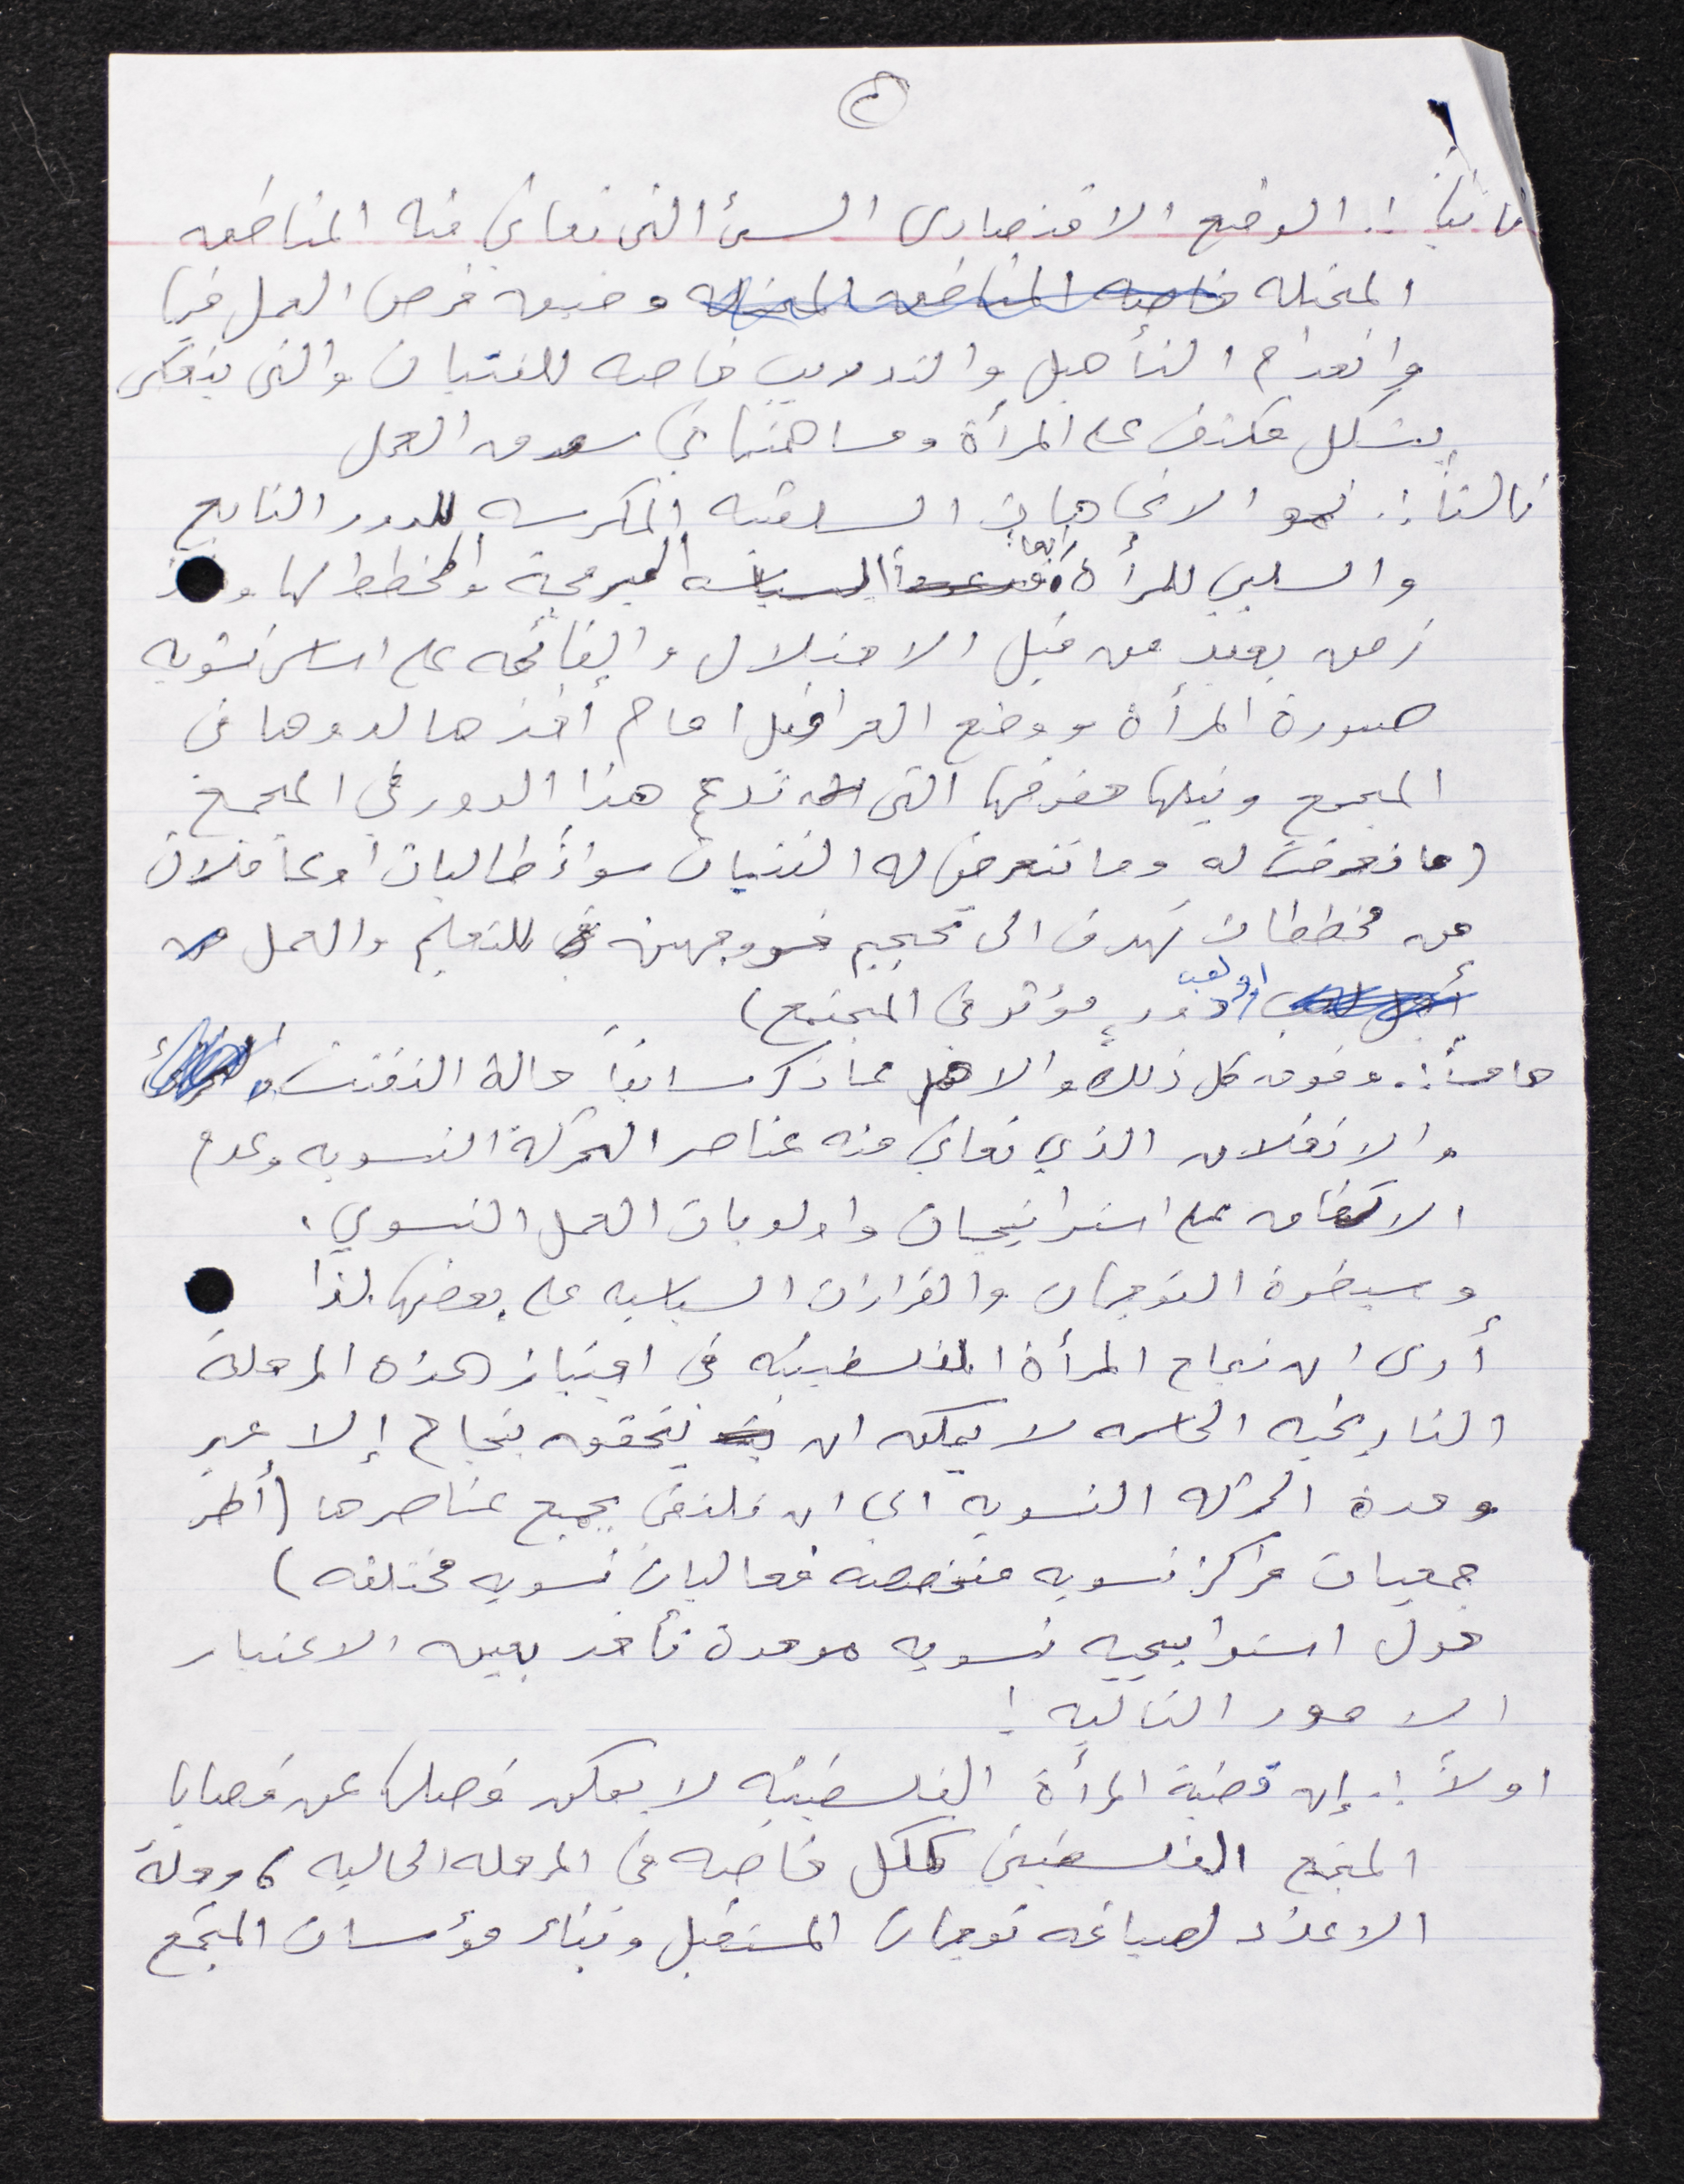 ٢
ثانياً :. الوضع الاقتصادى السئ التى تعاني منه المناطق
المحتله خاصه المناطق المحتله وضيق فرص العمل فيها
وانعدام التأهيل والتدريب خاصه للفتيات والتى ينعكس
بشكل مكثف على المرأة ومساهمتها في سوق العمل
ثالثاً :. نمو الاتجاهات السلفيه المكرسه للدور التابع
والسلبي للمرأة. رابعاً: السياسه المبرمجة والمخطط لها و
زمن بعيد من قبل الاحتلال والقائمه على اساس تشويه
صورة المرأة ووضع العراقيل امام أخذها لدورها فى
المجتمع ونيلها حقوقها التى تدعم هذا الدور في المجتمع
(ما تعرضت له وما تتعرض له الفتيات سواءً طالبات أو عاملات
من مخططات تهدف الى تحجيم خروجهن للتعليم والعمل
أجل لعب او لعب دور مؤثر فى المجتمع)
خامساً :. وفوق كل ذلك والاهم مما ذكر سابقاً حالة التفتت
والانغلاق الذي تعاني منه عناصر الحركة النسويه وعدم
الاتفاق على استراتيجيات واولويات العمل النسوي.
وسيطرة التوجهات والقرارات السياسيه على بعضها. لذا
أرى ان نجاح المرأة الفلسطينيه فى اجتياز هذه المرحلة
التاريخيه الحاسمه لا يمكن ان يتحقق بنجاح إلا عبر
وحدة الحركه النسويه اي ان تلتقى بجميع عناصرها (أطر
جمعيات مراكز نسويه متخصصه فعاليات نسويه مختلفه)
حول استراتيجيه نسويه موحدة تأخذ بعين الاعتبار
الامور التاليه :
اولاً :. إن قضية المرأة الفلسطينيه لا يمكن فصلها عن قضايا
المجتمع الفلسطيني ككل خاصه فى المرحله الحاليه، مرحلة
الاعداد لصياغه توجهات المستقبل وبناء مؤسسات المجتمع